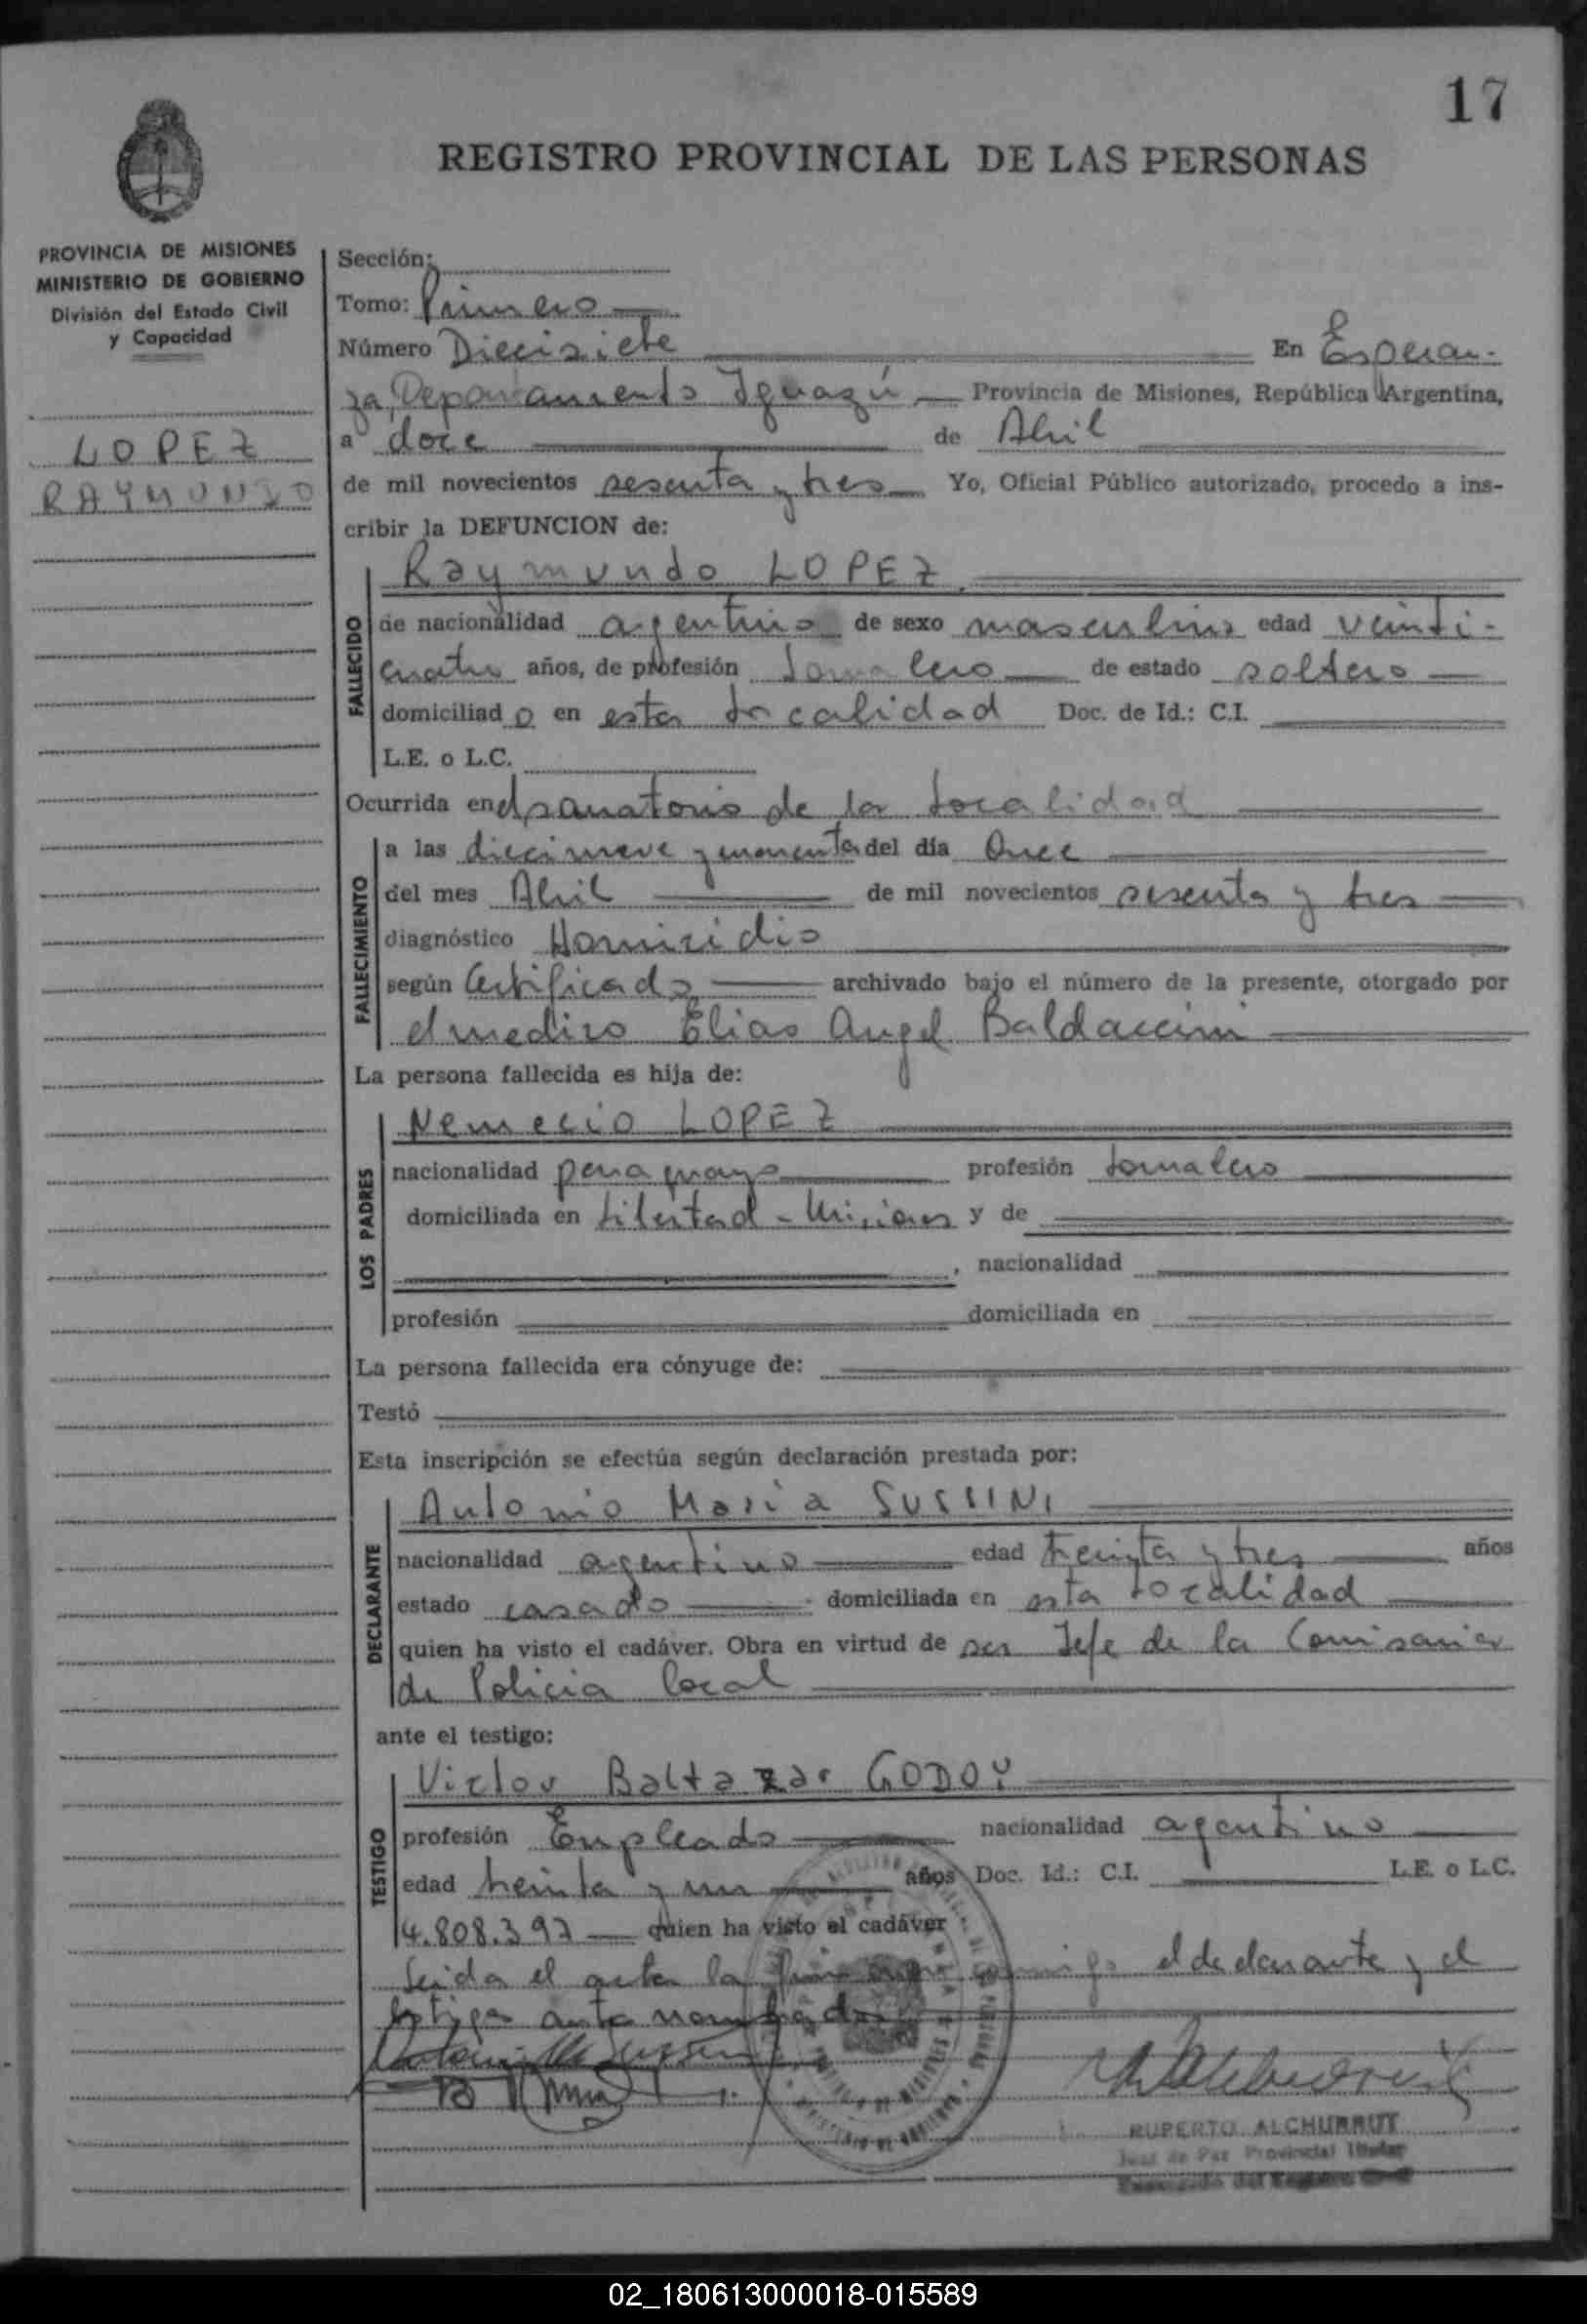 17
REGISTRO PROVINCIAL DE LAS PERSONAS
PROVINCIA DE MISIONES
MINISTERIO DE GOBIERNO
División del Estado Civil
y Capacidad
LOPEZ
RAYMUNDO
Sección:
Tomo: Primero
Número Diecisiete En Esperan-
za, Departamento Iguazú Provincia de Misiones, República Argentina,
a doce de Abril
de mil novecientos sesenta y tres Yo, Oficial Público autorizado, procedo a ins-
cribir la DEFUNCION de:
Raymundo LOPEZ
FALLECIDO
de nacionalidad argentino de sexo masculino edad veinti-
cuatro años, de profesión Jornalero de estado soltero
domiciliado en esta Localidad Doc. de Id.: C.I.
L.E. o L.C.
Ocurrida en el sanatorio de la Localidad
FALLECIMIENTO
a las diecinueve y cuarenta del día Once
del mes Abril de mil novecientos sesenta y tres
diagnóstico Homicidio
según Certificado archivado bajo el número de la presente, otorgado por
el medico Elias Angel Baldaccini
La persona fallecida es hija de:
LOS PADRES
Nemecio LOPEZ
nacionalidad paraguayo profesión Jornalero
domiciliada en Libertad - Misiones y de
, nacionalidad
profesión domiciliada en
La persona fallecida era cónyuge de:
Testó
Esta inscripción se efectúa según declaración prestada por:
DECLARANTE
Antonio Maria SUSSINI
nacionalidad argentino edad treinta y tres años
estado casado domiciliada en esta Localidad
quien ha visto el cadáver. Obra en virtud de ser Jefe de la Comisaria
de Policia local
ante el testigo:
TESTIGO
Victor Baltazar GODOY
profesión Empleado nacionalidad argentino
edad treinta y un años Doc. Id.: C.I. L.E. o L.C.
4.808.397 quien ha visto el cadáver
Leida el acta la conmigo el declarante y el
testigo ante nombrados
RUPERTO ALCHURRUT
Juez de Paz Provincial Titular
Encargado del Registro Civil
02_180613000018-015589